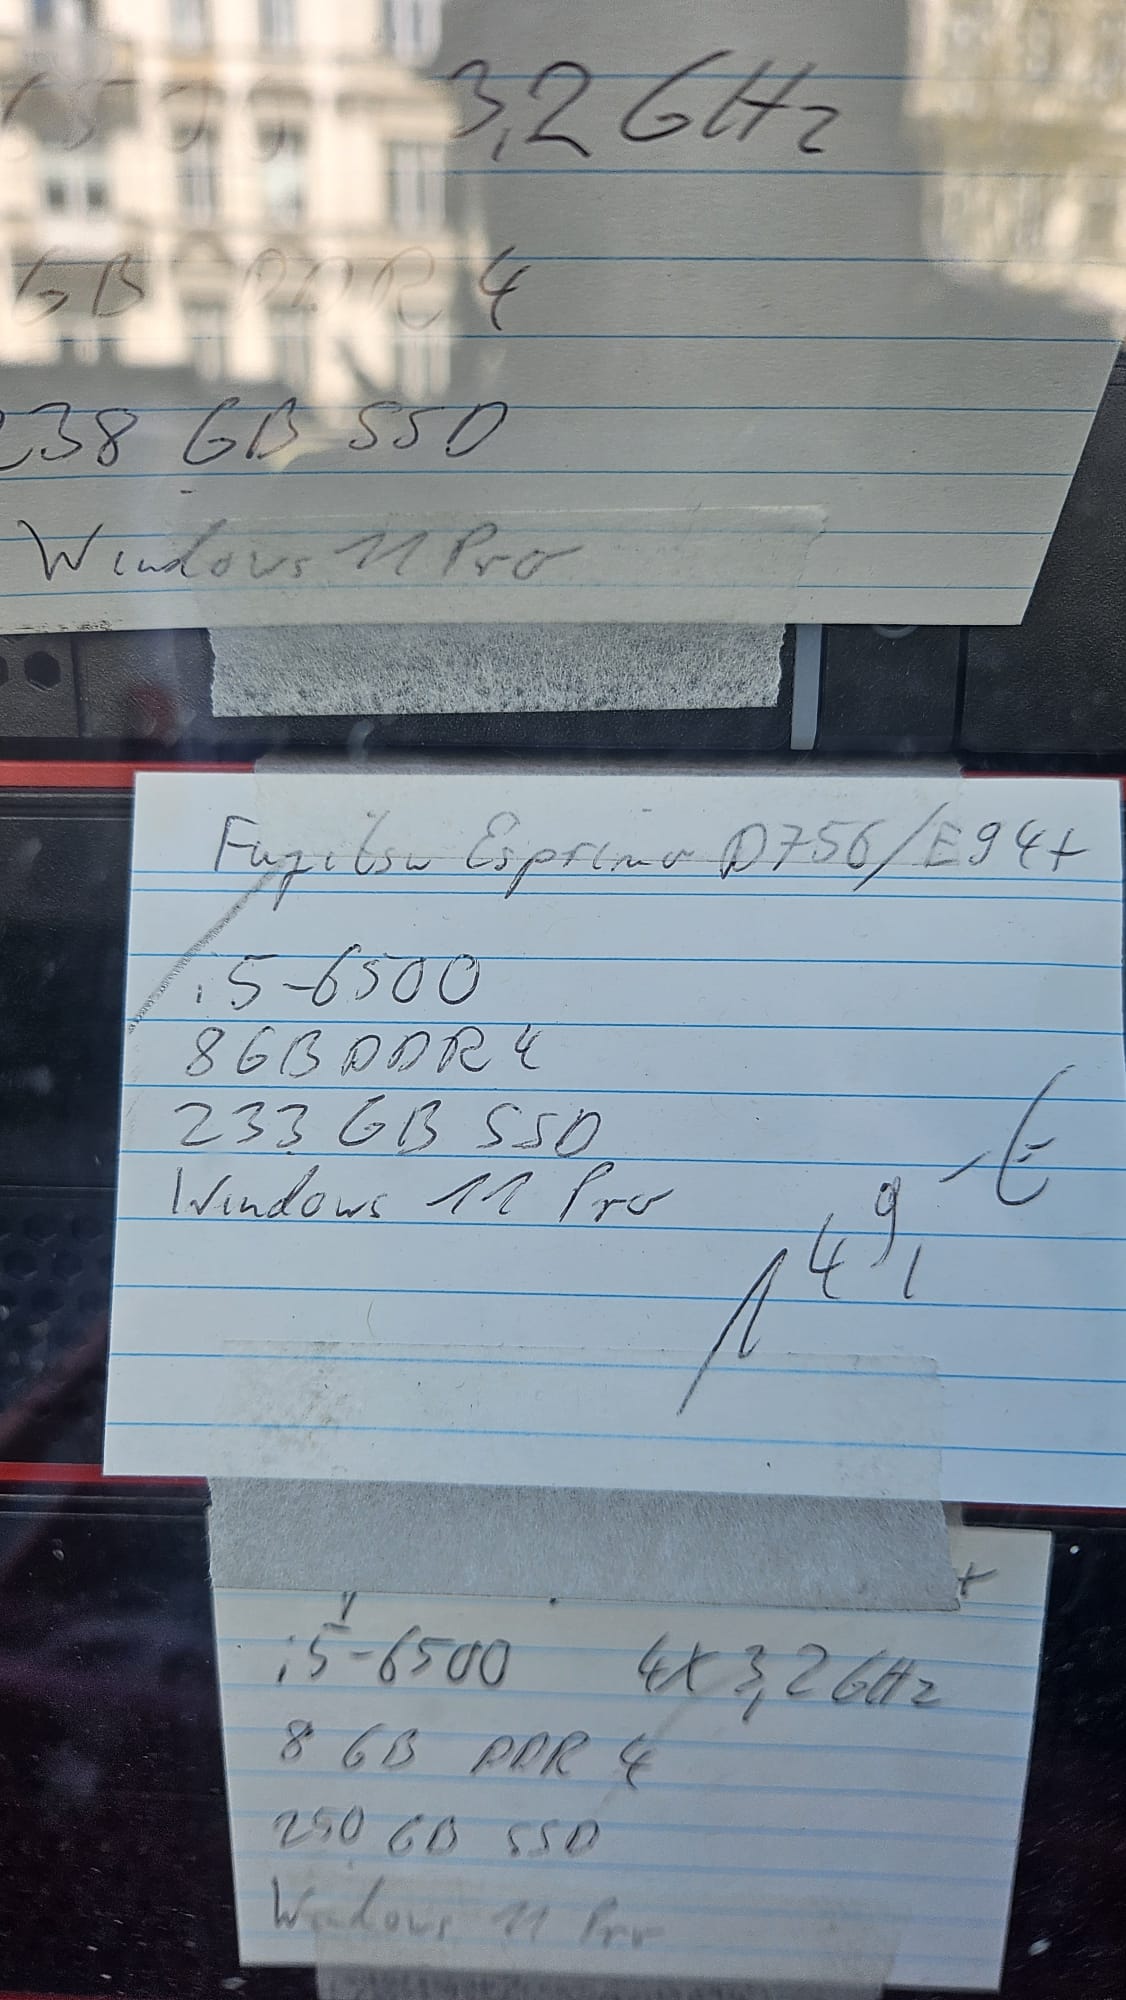 3,2 GHz
GB DDR4
238 GB SSD
Windows 11 Pro
Fugitsu Esprimo D756/E94+
i5-6500
8GB DDR4
233 GB SSD
Windows 11 Pro
149,-€
+
i5-6500 4x3,2GHz
8 GB DDR4
250 GB SSD
Windows 11 Pro